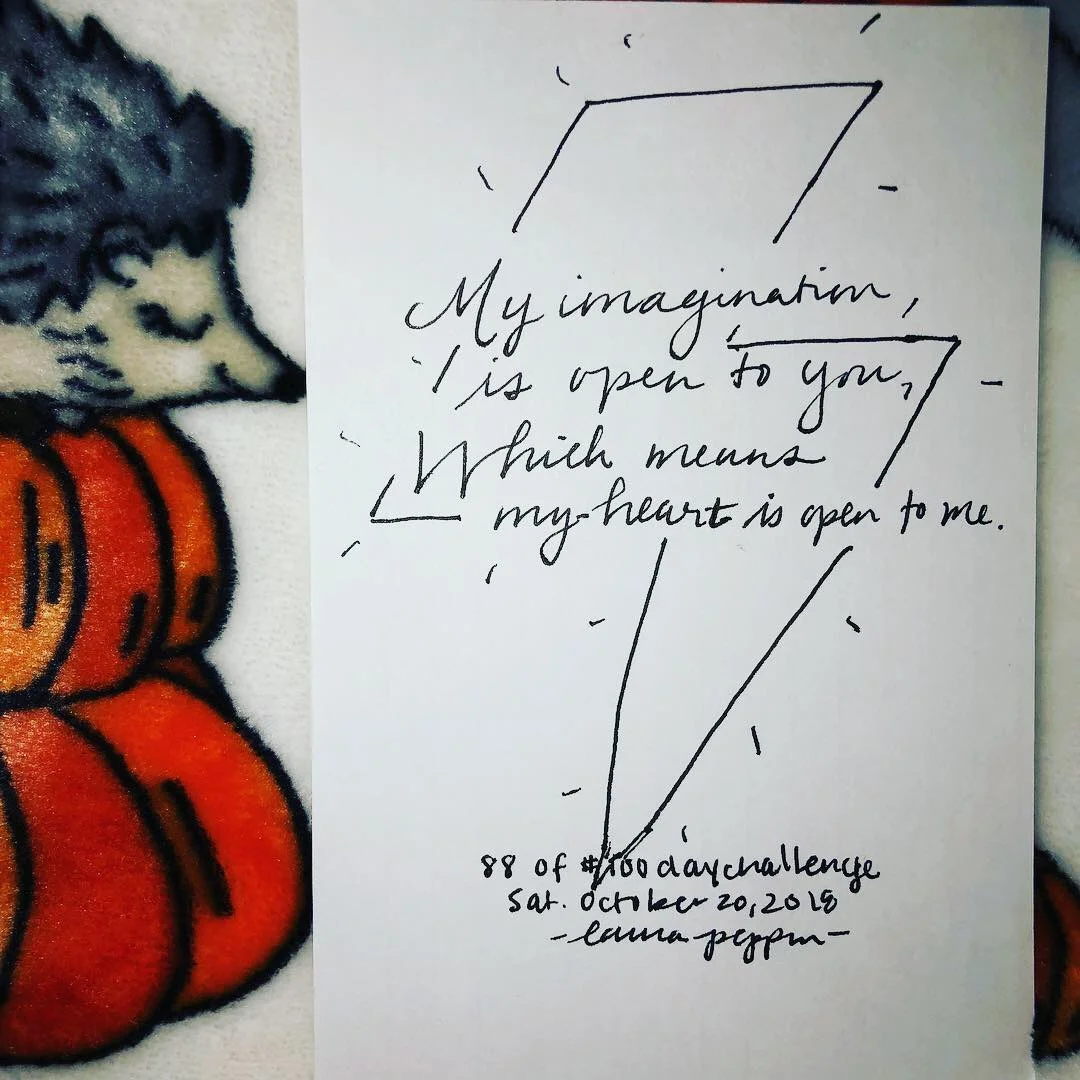 My imagination,
is open to you,
Which means
my heart is open to me.
88 of #100daychallenge
Sat. October 20, 2018
-laura peppin-